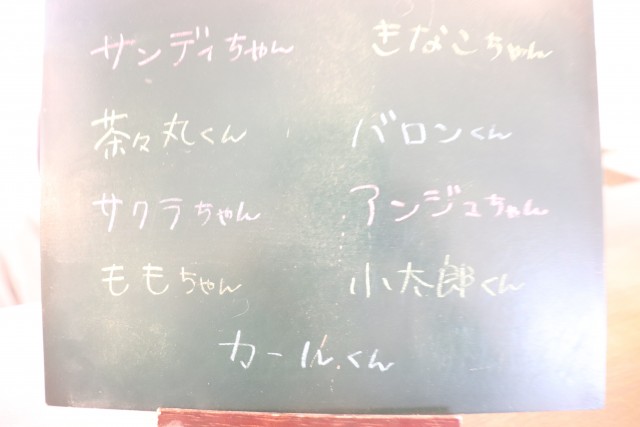 サンディちゃん きなこちゃん
茶々丸くん バロンくん
サクラちゃん アンジュちゃん
ももちゃん 小太郎くん
カールくん